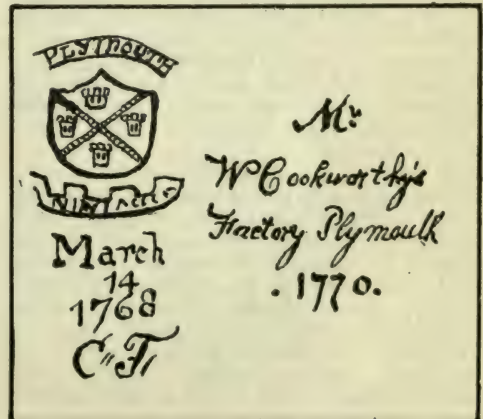 PLYMOUTH
March
14
1768
C"F"
Mr.
W Cookworthy's
Factory Plymouth
. 1770.